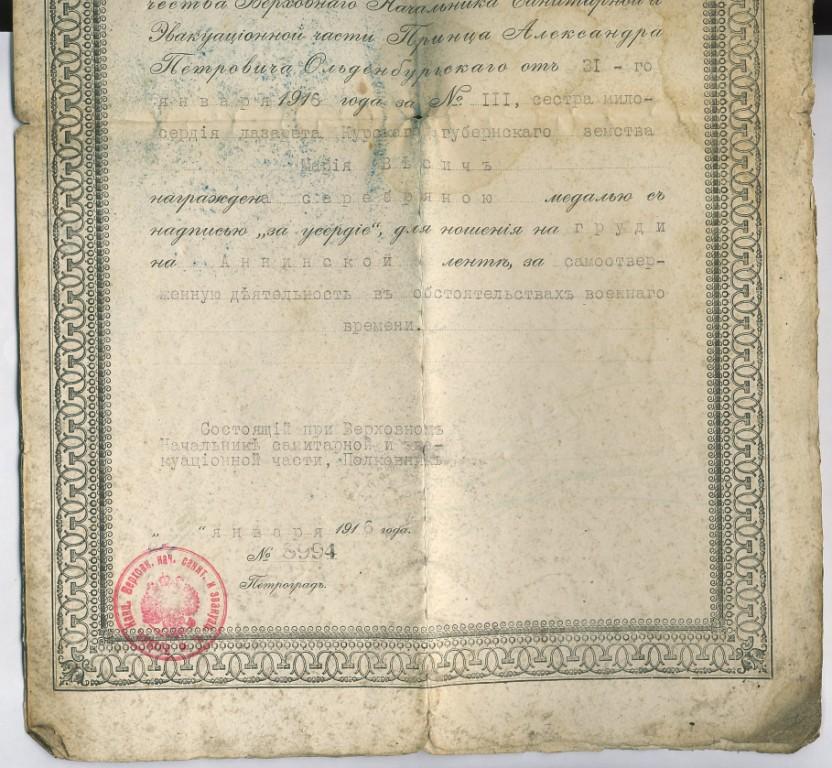 чества Верховнаго Начальника Санитарной и
Эвакуаціонной части Принца Александра
Петровича Ольденбургскаго отъ 31 - го
января 1916 года за № III, сестра мило-
сердія лазарета Курскаго губернскаго земства
Марія
награждена серебряною медалью съ
надписью „за усердіе“, для ношенія на груди
на Аннинской лентѣ, за самоотвер-
женную дѣятельность въ обстоятельствахъ военнаго
времени.
Состоящій при Верховномъ
Начальникѣ санитарной и эва-
куаціонной части, Полковникъ
„ “ января 1916 года.
№ 3994
Петроградъ.
Канц. Верховн. нач. санит. и эвакуац.